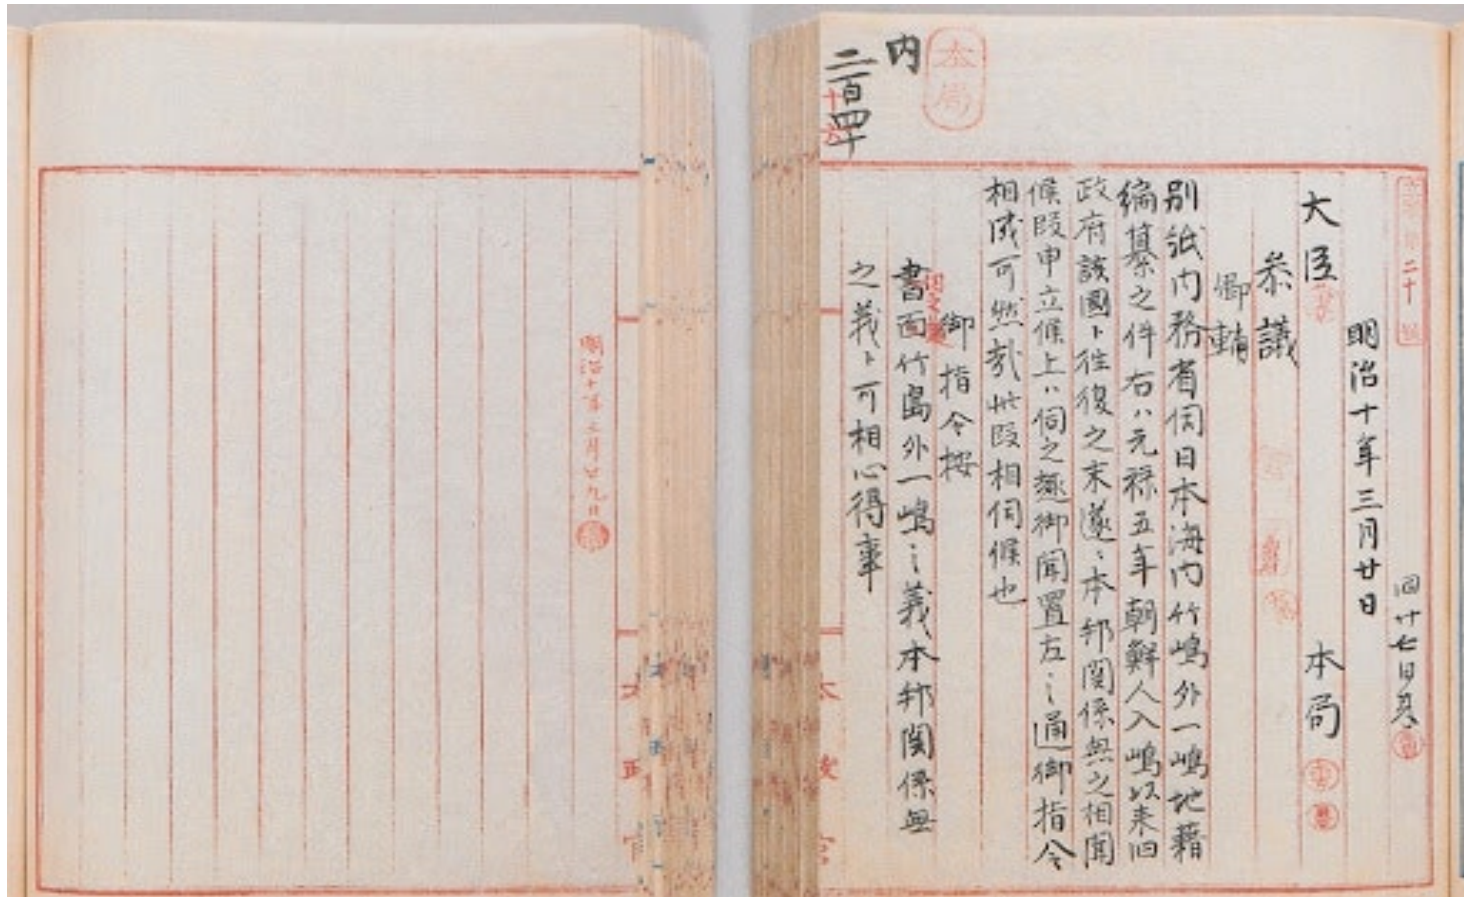 本局
内
二百四十
十六
第二十號
同廿七日来
明治十年三月廿日
大臣 本局
参議
卿輔
別紙内務省伺日本海内竹嶋外一嶋地籍
編纂之件右ハ元禄五年朝鮮人入嶋以来旧
政府該國ト往復之末遂ニ本邦関係無之相聞
候段申立候上ハ伺之趣御聞置左之通御指令
相成可然哉此段相伺候也
御指令按
伺之趣
書面竹島外一嶋之義本邦関係無
之義ト可相心得事
太政官
明治十年三月廿九日
太政官